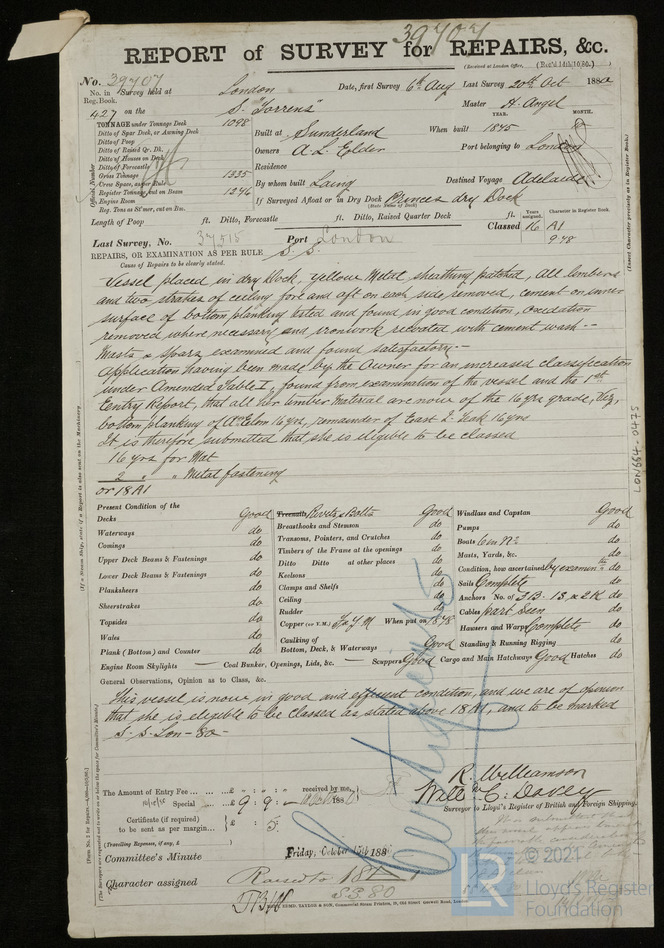 39707
REPORT of SURVEY for REPAIRS, &c.
(Received at London Office,
No. 39707
No. in Survey held at London Date, first Survey 6th Aug Last Survey 20th Oct 1880
Reg. Book.
427 on the S. "Torrens" Master H. Angel
TONNAGE under Tonnage Deck 1098
YEAR. MONTH.
Ditto of Spar Deck, or Awning Deck
Built at Sunderland When built 1875
Ditto of Poop
Ditto of Raised Qr. Dk.
Owners A. L. Elder Port belonging to London
Ditto of Houses on Deck
Ditto of Forecastle
Residence
Gross Tonnage 1335
Crew Space, as per Rule
By whom built Laing Destined Voyage Adelaide
Register Tonnage, cut on Beam 1276
Engine Room
If Surveyed Afloat or in Dry Dock Princes dry Dock
(State Name of Dock)
Reg. Tons as St'mer, cut on Bm.
Length of Poop ft. Ditto, Forecastle ft. Ditto, Raised Quarter Deck ft.
Years assigned. Character in Register Book.
Classed 16 A1
9.78
Last Survey, No. 37515 Port London
REPAIRS, OR EXAMINATION AS PER RULE S. S.
Cause of Repairs to be clearly stated.
Vessel placed in dry dock, yellow Metal sheathing patched, all limbers
and two strakes of ceiling fore and aft on each side, removed, cement on inner
surface of bottom planking tested and found in good condition, oxidation
removed where necessary and ironwork recoated with cement wash.--
Masts & Spars examined and found satisfactory.--
Application having been made by the Owner for an increased classification
under Amended Table I, found from examination of the vessel and the 1st
Entry Report, that all her timber Material are now of the 16 yrs grade, Viz,
bottom planking of A. Elm 16 yrs, remainder of East I. Teak 16 yrs
It is therefore submitted that she is eligible to be classed
16 yrs for Mat
2 " " Metal fastening
or 18 A1
Present Condition of the
Decks Good
Waterways do
Comings do
Upper Deck Beams & Fastenings do
Lower Deck Beams & Fastenings do
Planksheers do
Sheerstrakes do
Topsides do
Wales do
Plank (Bottom) and Counter do
Treenails Rivets & Bolts Good
Breasthooks and Stemson do
Transoms, Pointers, and Crutches do
Timbers of the Frame at the openings do
Ditto Ditto at other places do
Keelsons do
Clamps and Shelfs do
Ceiling do
Rudder do
Copper (or Y.M.) When put on 1878
Caulking of
Bottom, Deck, & Waterways Good
Windlass and Capstan Good
Pumps do
Boats 6 in No do
Masts, Yards, &c. do
Condition, how ascertained by examinn do
Sails Complete
Anchors No. of 3B. 1S & 2K do
Cables part seen do
Hawsers and Warps Complete do
Standing & Running Rigging do
Engine Room Skylights — Coal Bunker, Openings, Lids, &c. — Scuppers Good Cargo and Main Hatchways Good Hatches do
General Observations, Opinion as to Class, &c.
This vessel is now in good and efficient condition, and we are of opinion
that she is eligible to be classed as stated above 18 A1, and to be marked
S. S. Lon - 80 -
The Amount of Entry Fee ... £ " : " : received by me,
Special ... £ 9 : 9 : -
Certificate (if required) £ : 5 :
to be sent as per margin...
(Travelling Expenses, if any, £ )
R. Williamson
Willm C. Davey
Surveyor to Lloyd's Register of British and Foreign Shipping.
Committee's Minute Friday, October 15th 188
Character assigned Raised to 18A1
S.S. 80
LON664-0475
© 2021
LR
Lloyd's Register
Foundation